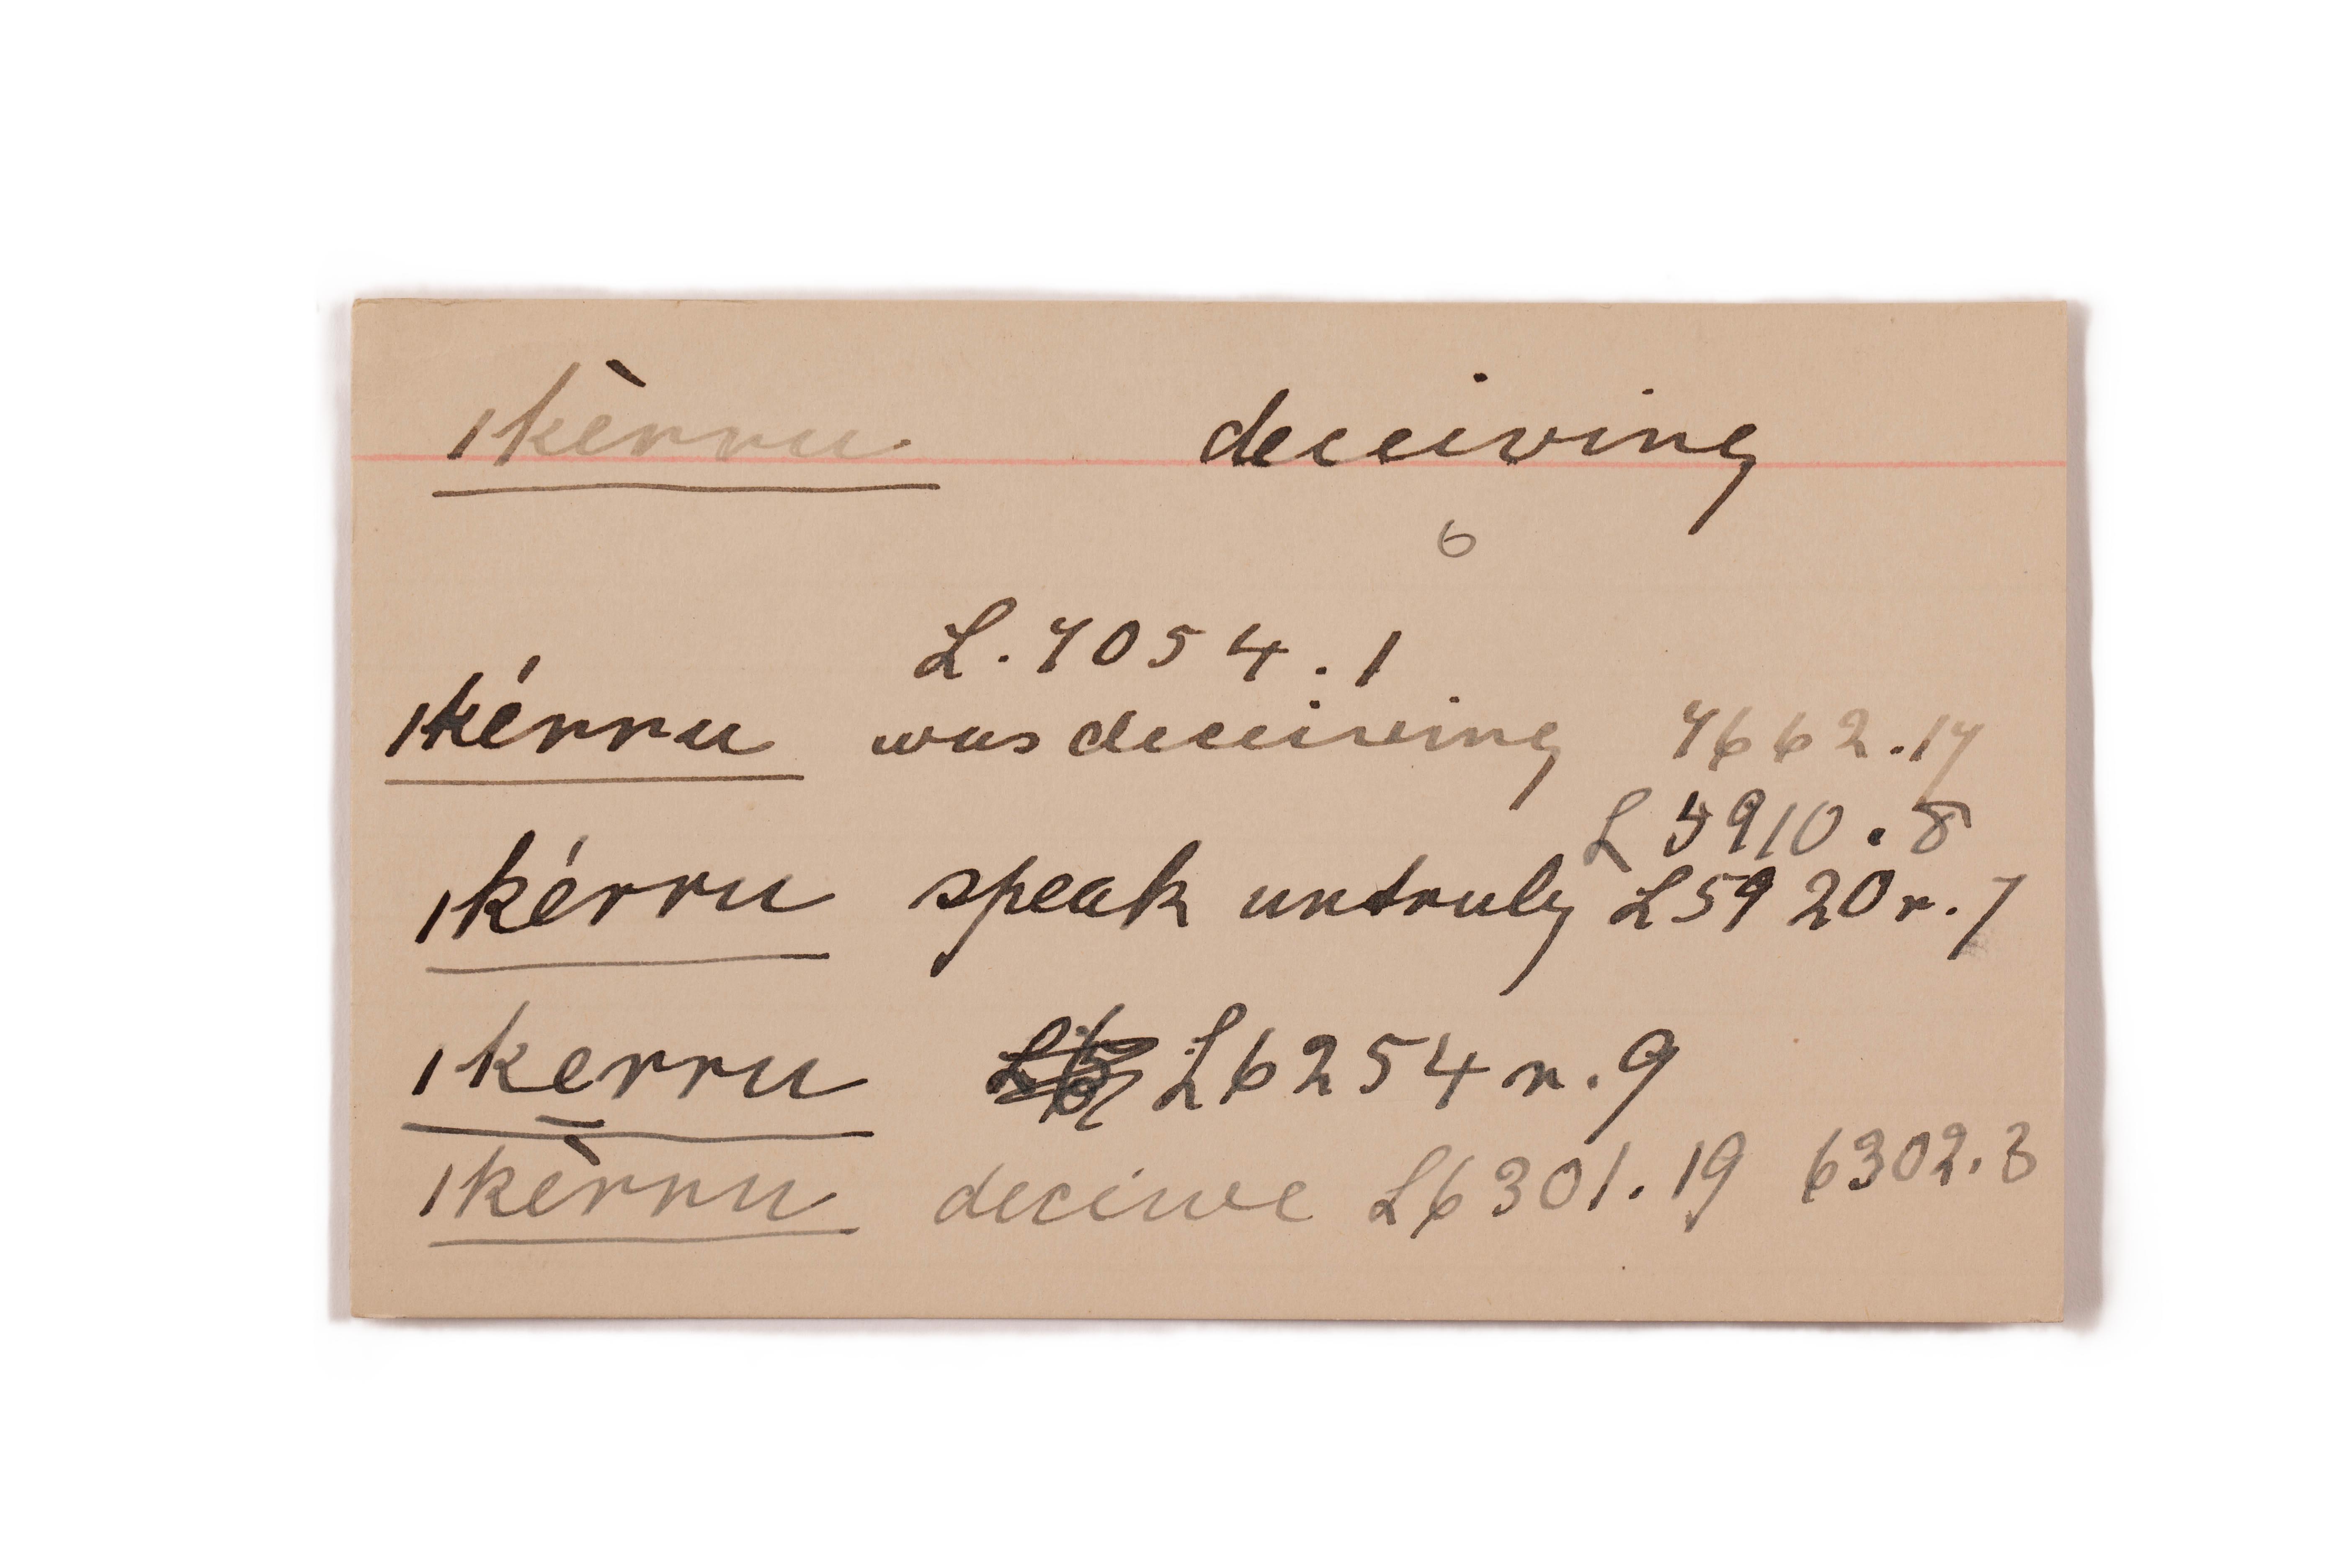 ıkèrru deceiving
6
L.4054.1
ıkérru was deceiving 4662.14
L5910.8
ıkérru speak untruly L5920r.7
ıke̠rru L6254r.9
ıkèrru deceive L6301.19 6302.3